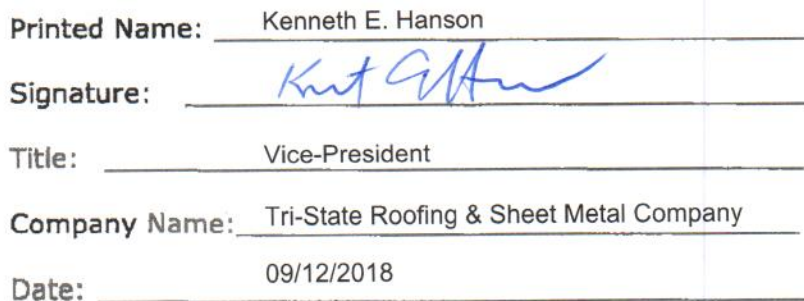 Printed Name: Kenneth E. Hanson
Signature:
Title: Vice-President
Company Name: Tri-State Roofing & Sheet Metal Company
Date: 09/12/2018